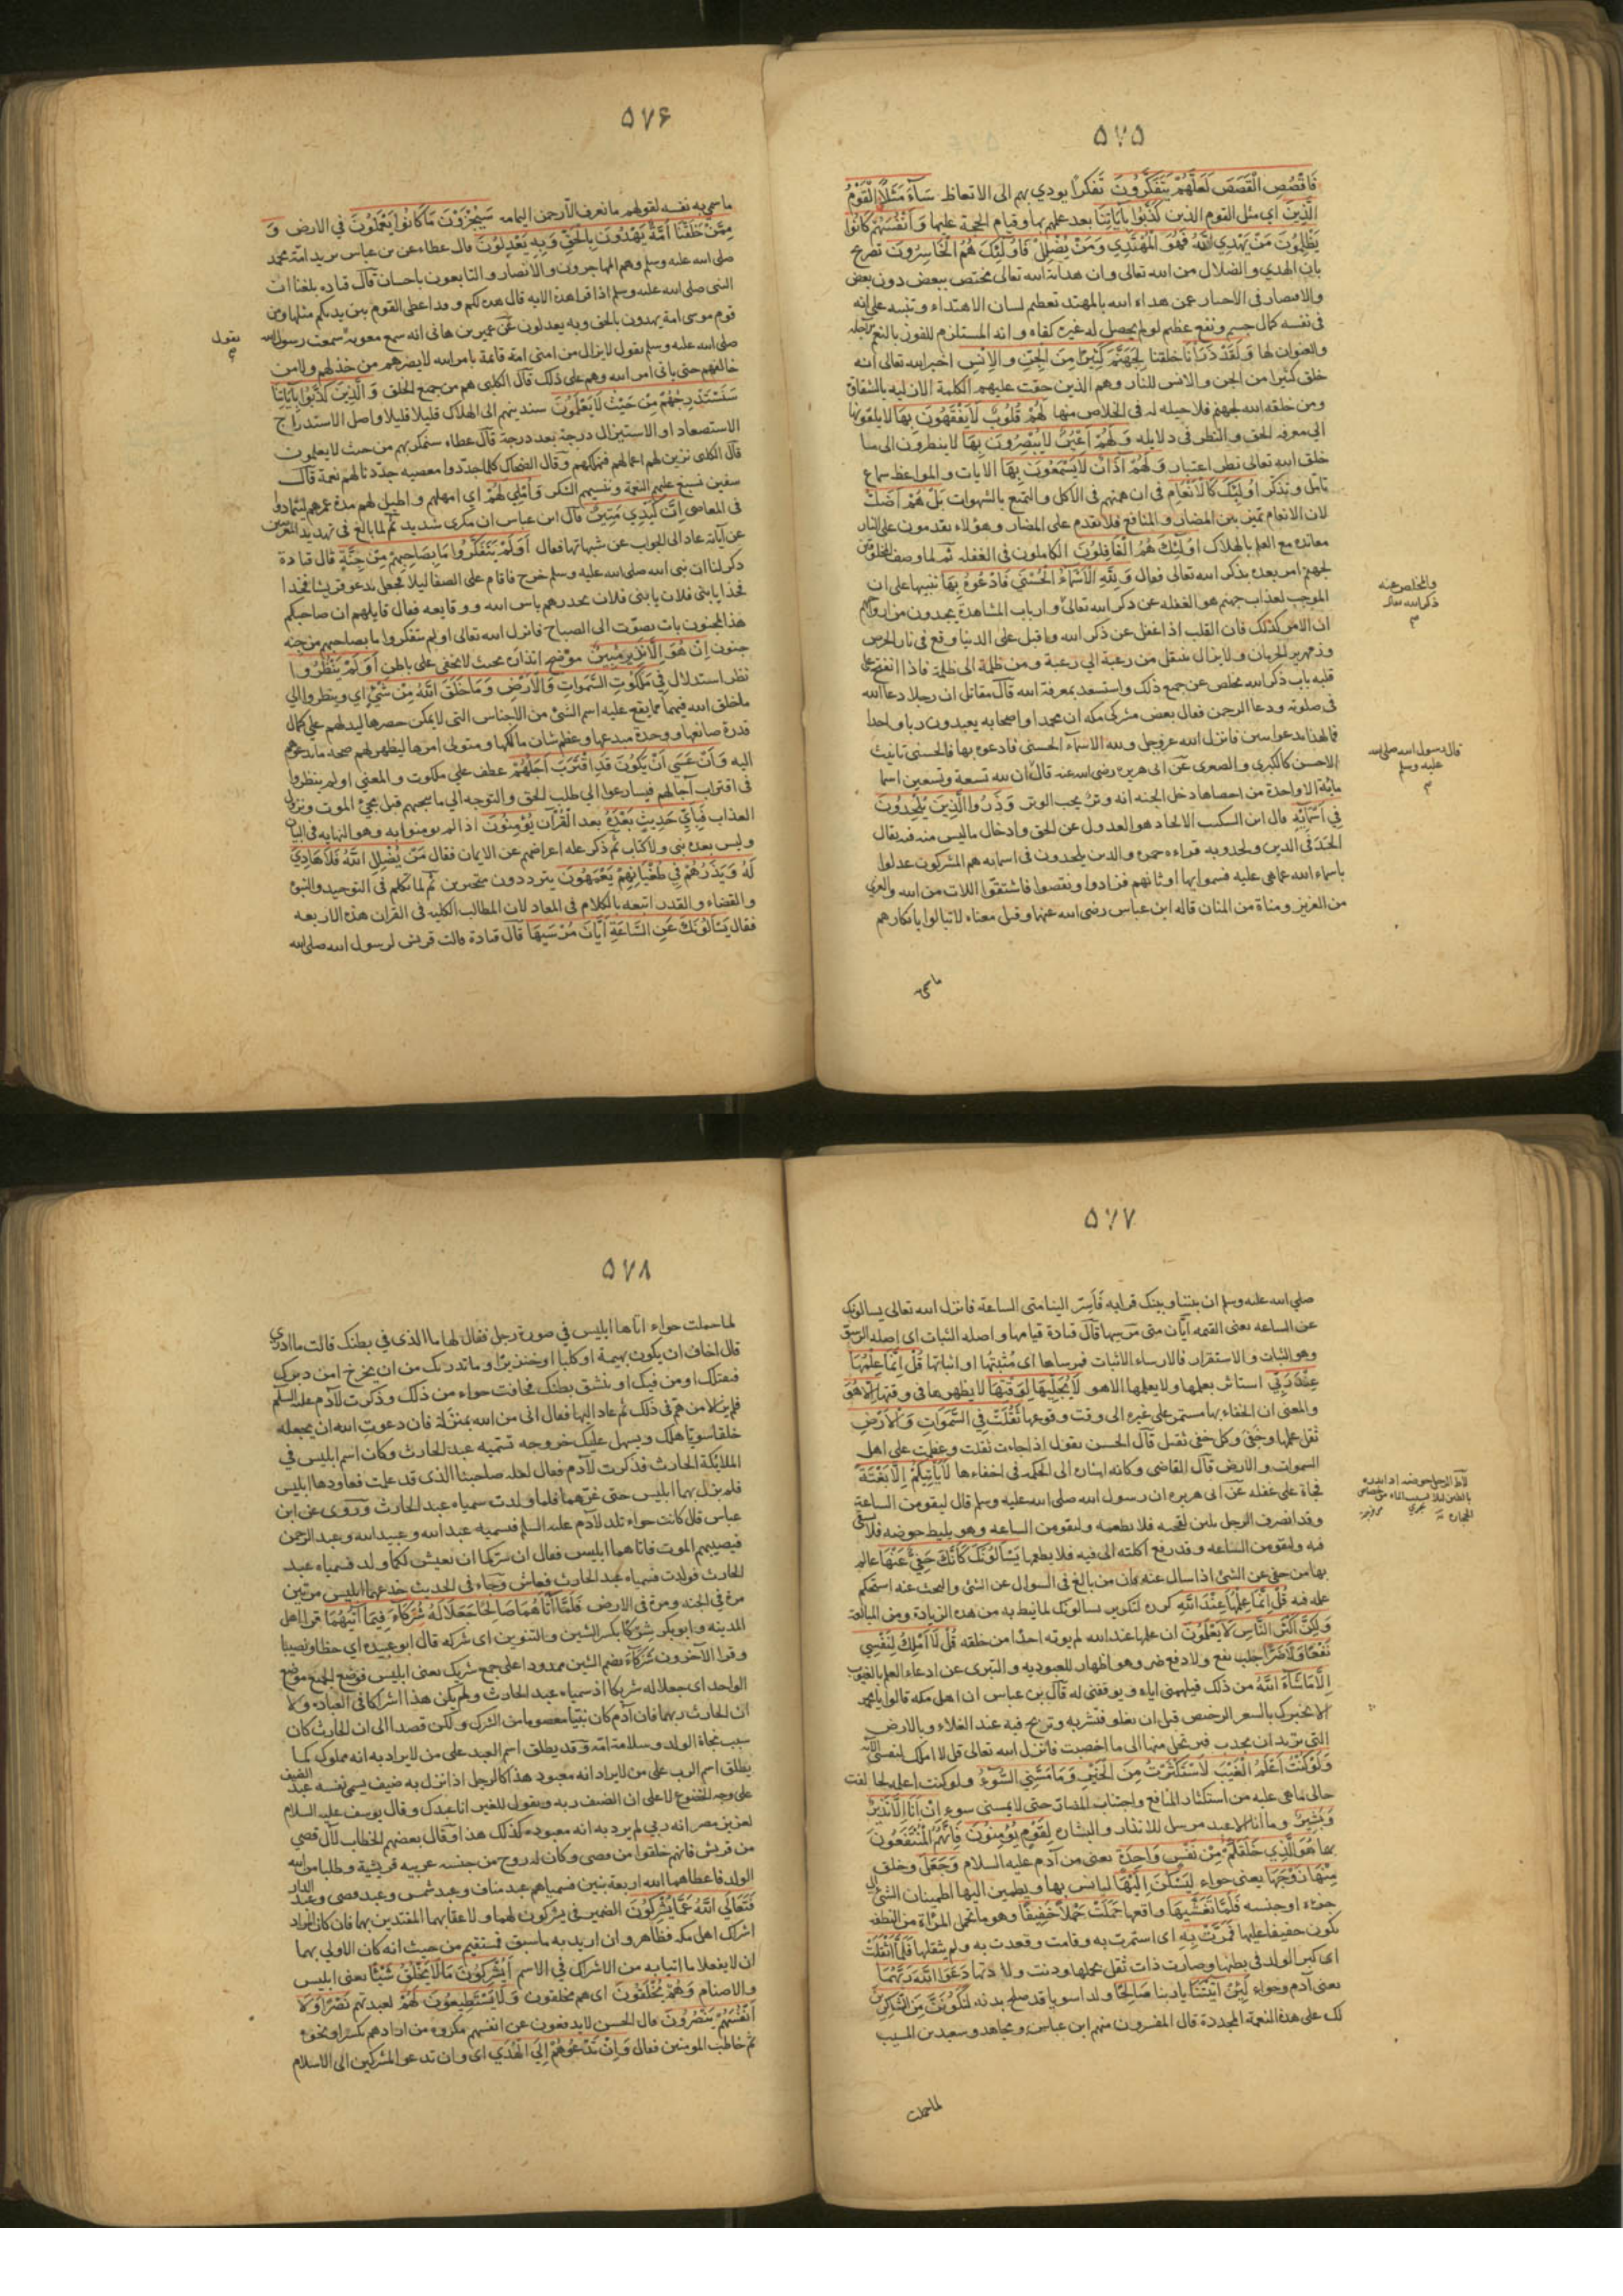 ٥٧٥
فَاقْصُصِ الْقَصَصَ لَعَلَّهُمْ يَتَفَكَّرُونَ تَفكرًا يودي بهم الى الاتعاظ سَآءَ مَثَلًا الْقَوْمُ
الَّذِينَ اي مثل القوم الذين كَذَّبُوا بِآيَاتِنَا بعد علمهم بها وقيام الحجة عليها وَأَنْفُسَهُمْ كَانُوا
يَظْلِمُونَ مَنْ يَهْدِي اللَّهُ فَهُوَ الْمُهْتَدِي وَمَنْ يُضْلِلْ فَأُولَئِكَ هُمُ الْخَاسِرُونَ تصرح
بان الهدي والضلال من الله تعالى وان هداية الله تعالى مختص ببعض دون بعض
والاقتصار في الاخبار عمن هداه الله بالمهتد تعظيم لشان الاهتداء وتنبيه على انه
في نفسه كمال جسيم ونفع عظيم لو لم يحصل له غيره كفاه وانه المستلزم للفوز بالنعم الآجلة
والعنوان لها وَلَقَدْ ذَرَأْنَا خلقنا لِجَهَنَّمَ كَثِيرًا مِنَ الْجِنِّ وَالْإِنْسِ اخبر الله تعالى انه
خلق كثيرا من الجن والانس للنار وهم الذين حقت عليهم الكلمة الازليه بالشقاق
ومن خلقه الله لجهنم فلا حيله له في الخلاص منها لَهُمْ قُلُوبٌ لَا يَفْقَهُونَ بِهَا لا يلقونها
الى معرفه الحق والنظر في دلايله وَلَهُمْ أَعْيُنٌ لَا يُبْصِرُونَ بِهَا لا ينظرون الى ما
خلق الله تعالى نظر اعتبار وَلَهُمْ آذَانٌ لَا يَسْمَعُونَ بِهَا الايات والمواعظ سماع
تامل وتذكر أُولَئِكَ كَالْأَنْعَامِ في ان همتهم في الاكل والتمتع بالشهوات بَلْ هُمْ أَضَلُّ
لان الانعام تميز بين المضار والمنافع فلا تقدم على المضار وهؤلاء يقدمون على النار
معانده مع العلم بالهلاك أُولَئِكَ هُمُ الْغَافِلُونَ الكاملون في الغفله ثم لما وصف المخلوقين
لجهنم امر بعده بذكر الله تعالى فقال وَلِلَّهِ الْأَسْمَاءُ الْحُسْنَى فَادْعُوهُ بِهَا تنبيها على ان
الموجب لعذاب جهنم هو الغفله عن ذكر الله تعالى وارباب المشاهدة يجدون من ارواحهم
ان الامر كذلك فان القلب اذا غفل عن ذكر الله واقبل على الدنيا وقع في نار الحرص
وزمهرير الحرمان ولا يزال ينتقل من رغبة الى رغبة ومن ظلمة الى ظلمة فاذا انفتح على
قلبه باب ذكر الله تخلص عن جميع ذلك واستسعد بمعرفة الله قال مقاتل ان رجلا دعا الله
في صلوته ودعا الرحمن فقال بعض مشركي مكه ان محمدا واصحابه يعبدون ربا واحدا
فما لهذا يدعو اثنين فانزل الله عز وجل ولله الاسمآء الحسنى فادعوه بها والحسنى تانيث
الاحسن كالكبرى والصغرى عن ابي هريره رضي الله عنه قال ان لله تسعة وتسعين اسما
مائة الا واحدة من احصاها دخل الجنه انه وتر يحب الوتر وَذَرُوا الَّذِينَ يُلْحِدُونَ
فِي أَسْمَائِهِ قال ابن السكيت الالحاد هو العدول عن الحق وادخال ماليس منه فيه يقال
الحَدَ في الدين ولحد وبه قراءه حمزه والذين يلحدون في اسمايه هم المشركون عدلوا
باسماء الله عما هي عليه فسموا بها اوثانهم فزادوا ونقصوا فاشتقوا اللات من الله والعزي
من العزيز ومناة من المنان قاله ابن عباس رضي الله عنهما وقيل معناه لا تبالوا بانكارهم
ماسمى
والمخلص عنه
ذكر الله تعالى
قال رسول الله صلى الله
عليه وسلم
٥٧۶
ما سمي به نفسه لقولهم ما نعرف الا رحمن اليمامه سَيُجْزَوْنَ مَا كَانُوا يَعْمَلُونَ في الارض وَ
مِمَّنْ خَلَقْنَا أُمَّةٌ يَهْدُونَ بِالْحَقِّ وَبِهِ يَعْدِلُونَ قال عطاء عن بن عباس يريد امة محمد
صلى الله عليه وسلم وهم المهاجرون والانصار والتابعون باحسان قال قتاده بلغنا ان
النبى صلى الله عليه وسلم اذا قرا هذه الايه قال هذه لكم وقد اعطى القوم بين يديكم مثلها ومن
قوم موسى امة يهدون بالحق وبه يعدلون عن عمير بن هانى انه سمع معوية سمعت رسول الله
صلى الله عليه وسلم يقول لا يزال من امتي امة قائمة بامر الله لا يضرهم من خذلهم ولا من
خالفهم حتى ياتى امر الله وهم على ذلك قال الكلبى هم من جميع الخلق وَالَّذِينَ كَذَّبُوا بِآيَاتِنَا
سَنَسْتَدْرِجُهُمْ مِنْ حَيْثُ لَا يَعْلَمُونَ سندينهم الى الهلاك قليلا قليلا واصل الاستدراج
الاستصعاد او الاستنزال درجة بعد درجة قال عطاء سنمكر بهم من حيث لا يعلمون
قال الكلبى نزين لهم اعمالهم فنهلكهم وقال الضحاك كلما جددوا معصيه جدّدنا لهم نعمة قال
سفين نسبغ عليهم النعمة وننسيهم الشكر وَأُمْلِي لَهُمْ اي امهلهم واطيل لهم مدة عمرهم ليتمادوا
في المعاصي إِنَّ كَيْدِي مَتِينٌ قال ابن عباس ان مكري شديد ثم لما بالغ في تهديد المعرضين
عن آياته عاد الى الجواب عن شبهاتها فقال أَوَلَمْ يَتَفَكَّرُوا مَا بِصَاحِبِهِمْ مِنْ جِنَّةٍ قال قتادة
ذكر لنا ان نبي الله صلى الله عليه وسلم خرج فاقام على الصفا ليلا فجعل يدعو قريشا فخذا
فخذا يا بني فلان يا بني فلان يحذرهم باس الله ووقايعه فقال قايلهم ان صاحبكم
هذا لمجنون بات يصوّت الى الصباح فانزل الله تعالى اولم يتفكروا ما بصاحبهم من جنه
جنون إِنْ هُوَ إِلَّا نَذِيرٌ مُبِينٌ موضح انذاره بحيث لا يخفى على باطن أَوَلَمْ يَنْظُرُوا
نظر استدلال فِي مَلَكُوتِ السَّمَوَاتِ وَالْأَرْضِ وَمَا خَلَقَ اللَّهُ مِنْ شَيْءٍ اي وينظروا الى
ما خلق الله فيهما مما يقع عليه اسم الشئ من الاجناس التي لا يمكن حصرها ليدلهم على كمال
قدرة صانعها ووحدة مبدعها وعظم شان مالكها ومتولى امرها ليظهر لهم صحة ما يدعوهم
اليه وَأَنْ عَسَى أَنْ يَكُونَ قَدِ اقْتَرَبَ أَجَلُهُمْ عطف على ملكوت والمعنى اولم ينظروا
في اقتراب آجالهم فيسارعوا الى طلب الحق والتوجه الى ما ينجيهم قبل مجيء الموت ونزول
العذاب فَبِأَيِّ حَدِيثٍ بَعْدَهُ بعد القرآن يُؤْمِنُونَ اذا لم يومنوا به وهو النهايه في البيان
وليس بعده نبي ولا كتاب ثم ذكر عله اعراضهم عن الايمان فقال مَنْ يُضْلِلِ اللَّهُ فَلَا هَادِيَ
لَهُ وَيَذَرُهُمْ فِي طُغْيَانِهِمْ يَعْمَهُونَ يترددون متحيرين ثم لما تكلم في التوحيد والنبوة
والقضاء والقدر اتبعه بالكلام في المعاد لان المطالب الكليه في القران هذه الاربعه
فقال يَسْأَلُونَكَ عَنِ السَّاعَةِ أَيَّانَ مُرْسَيهَا قال قتادة قالت قريش لرسول الله صلى الله
يقول
٥٧٧
صلى الله عليه وسلم ان بيننا وبينك قرابه فَأَسِرّ الينا متى الساعة فانزل الله تعالى يسالونك
عن الساعه يعنى القيمه أيّان متى مرسيها قال قتادة قيامها واصله الثبات اى اصله الرسو
وهو الثبات والاستقرار فالارساء الاثبات فمرساها اى مُثبتها او اثباتها قُلْ إِنَّمَا عِلْمُهَا
عِنْدَ رَبِّي استاثر بعلمها ولا يعلمها الا هو لَا يُجَلِّيهَا لِوَقْتِهَا لا يظهرها في وقتها إِلَّا هُوَ
والمعنى ان الخفاء بها مستمر على غيره الى وقت وقوعها ثَقُلَتْ فِي السَّمَوَاتِ وَالْأَرْضِ
ثقل علمها وخفى وكل خفى ثقيل قال الحسن يقول اذا جاءت ثقلت وعظمت على اهل
السموات والارض قال القاضى وكانه اشاره الى الحكمه في اخفاءها لَا تَأْتِيكُمْ إِلَّا بَغْتَةً
فجاة على غفله عن ابى هريره ان رسول الله صلى الله عليه وسلم قال ليقومن الساعة
وقد انصرف الرجل بلبن لقحته فلا يطعمه ولتقومن الساعه وهو يليط حوضه فلا يسقى
فيه ولتقومن الساعه وقد رفع اكلته الى فيه فلا يطعمها يَسْأَلُونَكَ كَأَنَّكَ حَفِيٌّ عَنْهَا عالم
بها من حفى عن الشئ اذا سال عنه فان من بالغ في السوال عن الشئ والبحث عنه استحكم
علمه فيه قُلْ إِنَّمَا عِلْمُهَا عِنْدَ اللَّهِ كرره لتكرير يسالونك لما نيط به من هذه الزيادة ومن المبالغة
وَلَكِنَّ أَكْثَرَ النَّاسِ لَا يَعْلَمُونَ ان علمها عند الله لم يوته احدًا من خلقه قُلْ لَا أَمْلِكُ لِنَفْسِي
نَفْعًا وَلَا ضَرًّا جلب نفع ولا دفع ضر وهو اظهار للعبوديه والتبرى عن ادعاء العلم بالغيوب
إِلَّا مَا شَاءَ اللَّهُ من ذلك فيلهمنى اياه ويوفقنى له قال بن عباس ان اهل مكه قالوا يا محمد
الا يخبرك بالسعر الرخيص قبل ان يغلو فتشريه وتربح فيه عند الغلاء وبالارض
التى يريد ان يجدب فترتحل منها الى ما اخصبت فانزل الله تعالى قل لا املك لنفسى الآيه
وَلَوْ كُنْتُ أَعْلَمُ الْغَيْبَ لَاسْتَكْثَرْتُ مِنَ الْخَيْرِ وَمَا مَسَّنِيَ السُّوءُ ولو كنت اعلمه لخالفت
حالى ما هى عليه من استكثار المنافع واجتناب المضار حتى لا يمسنى سوء إِنْ أَنَا إِلَّا نَذِيرٌ
وَبَشِيرٌ وما انا الا عبد مرسل للانذار والبشاره لِقَوْمٍ يُؤْمِنُونَ فانهم المنتفعون
بهما هُوَ الَّذِي خَلَقَكُمْ مِنْ نَفْسٍ وَاحِدَةٍ يعنى من آدم عليه السلام وَجَعَلَ وخلق
مِنْهَا زَوْجَهَا يعنى حواء لِيَسْكُنَ إِلَيْهَا ليانس بها ويطمين اليها اطمينان الشئ الى
جزءه او جنسه فَلَمَّا تَغَشَّيهَا واقعها حَمَلَتْ حَمْلًا خَفِيفًا وهو ما تحمل المراة من النطفه
يكون خفيفا عليها فَمَرَّتْ بِهِ اى استمرت به وقامت وقعدت به ولم يثقلها فَلَمَّا أَثْقَلَتْ
اى كبر الولد في بطنها وصارت ذات ثقل بحملها ودنت ولادتها دَعَوَا اللَّهَ رَبَّهُمَا
يعنى آدم وحواء لَئِنْ آتَيْتَنَا يا ربنا صَالِحًا ولدا سويا قد صلح بدنه لَنَكُونَنَّ مِنَ الشَّاكِرِينَ
لك على هذه النعمة المجددة قال المفسرون منهم ابن عباس ومجاهد وسعيد بن المسيب
لما حملت
٥٧٨
لما حملت حواء اتاها ابليس في صورة رجل فقال لها ما الذى في بطنك قالت ما ادرى
قال اخاف ان يكون بهيمة او كلبا او خنزيرًا وما تدريك من ان يخرج امن دبرك
فيقتلك او من فيك او ينشق بطنك فخافت حواء من ذلك وذكرت لآدم عليه السلم
فلم يزالا من هم في ذلك ثم عاد اليها فقال انى من الله بمنزلة فان دعوت الله ان يجعله
خلقا سويّا مثلك ويسهل عليك خروجه تسميه عبد الحارث وكان اسم ابليس في
الملايكة الحارث فذكرت لآدم فقال لعله صاحبنا الذى قد علمت فعاودها ابليس
فلم يزل بهما ابليس حتى غرّهما فلما ولدت سمياه عبد الحارث وروى عن ابن
عباس قال كانت حواء تلد لآدم عليه السلم فيسميه عبد الله وعبيد الله وعبد الرحمن
فيصيبهم الموت فاتاهما ابليس فقال ان سركما ان يعيش لكما ولد فسمياه عبد
الحارث فولدت فسمياه عبد الحارث فعاش وجاء في الحديث خدعهما ابليس مرتين
مرة في الجنه ومرة في الارض فَلَمَّا آتَاهُمَا صَالِحًا جَعَلَا لَهُ شُرَكَاءَ فِيمَا آتَيهُمَا قرا اهل
المدينه وابو بكر شِركًا بكسر الشين والتنوين اى شركه قال ابو عبيده اى حظا ونصيبا
وقرا الآخرون شُرَكَاءَ بضم الشين ممدودا على جمع شريك يعنى ابليس فوضع الجمع موضع
الواحد اى جعلا له شريكا اذ سمياه عبد الحارث ولم يكن هذا اشراكا في العبادة ولا
ان الحارث ربهما فان آدم كان نبيّا معصوما من الشرك ولكن قصدا الى ان الحارث كان
سبب نجاة الولد وسلامة امّه وقد يطلق اسم العبد على من لا يراد به انه مملوك كما
يطلق اسم الرب على من لا يراد انه معبود هذا كالرجل اذا نزل به ضيف يسمى نفسه عبد الضيف
على وجه الخضوع لا على ان الضيف ربه ويقول للغير انا عبدك وقال يوسف عليه السلام
لعزيز مصر انه ربي لم يرد به انه معبوده كذلك هذا وقال بعضهم الخطاب لآل قصي
من قريش فانهم خلقوا من قصى وكان له زوج من جنسه عربيه قرشية وطلبا من الله
الولد فاعطاهما الله اربعة بنين فسمياهم عبد مناف وعبد شمس وعبد قصى وعبد الدار
فَتَعَالَى اللَّهُ عَمَّا يُشْرِكُونَ الضمير في يشركون لهما ولاعقابهما المقتدين بهما فان كان المراد
اشراك اهل مكه فظاهر وان اريد به ما سبق فمستقيم من حيث انه كان الاولى بهما
ان لا يفعلا ما اتيا به من الاشراك في الاسم أَيُشْرِكُونَ مَا لَا يَخْلُقُ شَيْئًا يعنى ابليس
والاصنام وَهُمْ يُخْلَقُونَ اى هم مخلوقون وَلَا يَسْتَطِيعُونَ لَهُمْ لعبدتهم نَصْرًا وَلَا
أَنْفُسَهُمْ يَنْصُرُونَ قال الحسن لا يدفعون عن انفسهم مكروه من ارادهم بكسر او نحوه
ثم خاطب المومنين فقال وَإِنْ تَدْعُوهُمْ إِلَى الْهُدَى اى وان تدعو المشركين الى الاسلام